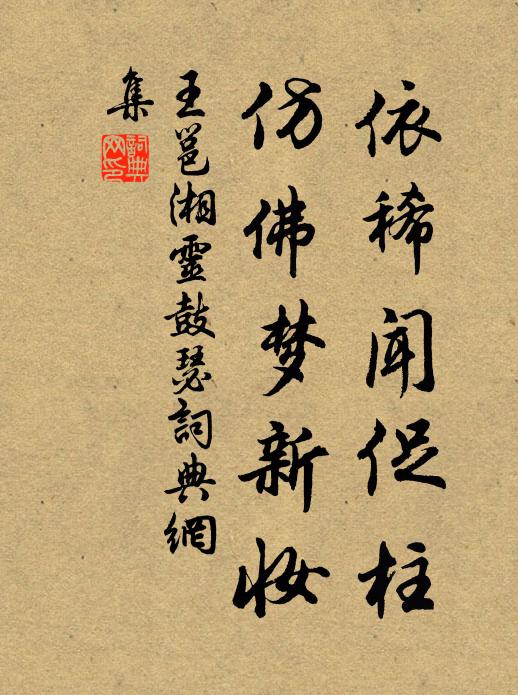 依稀闻促柱
仿佛梦新妆
王邕湘靈鼓瑟詞典網
集
詞典
网印